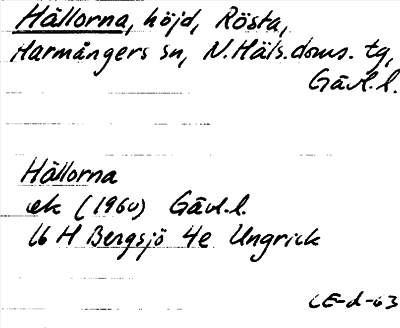 Hällorna, höjd, Rösta,
Harmångers sn, N. Häls. doms. tg,
Gävl.l.
Hällorna
ek (1960) Gävl.l.
16 H Bergsjö 4e Ungrick
CE-d-63